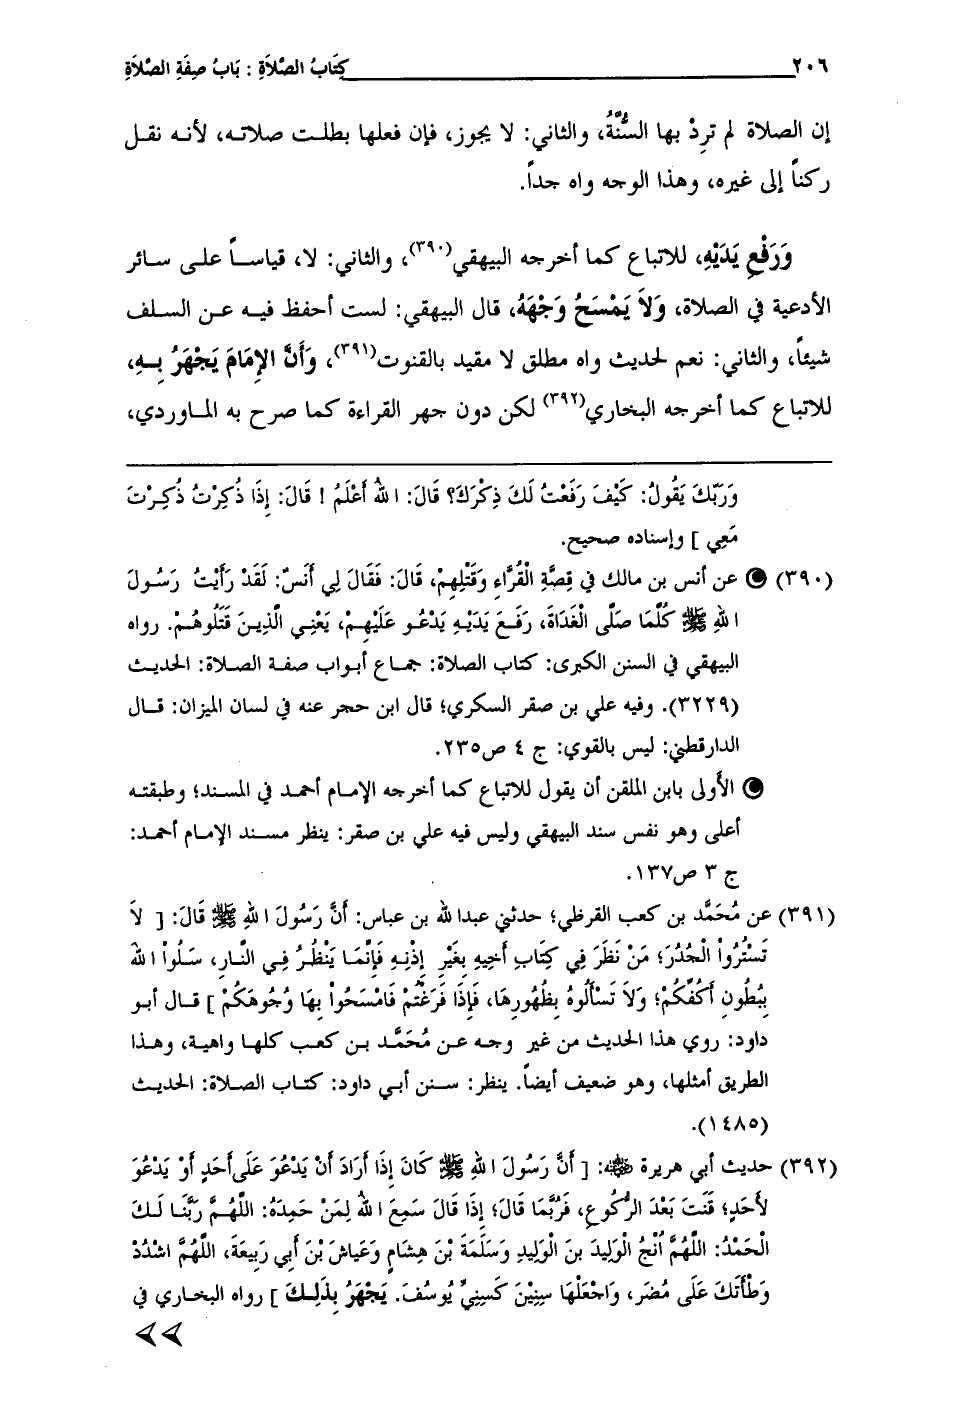 ٢٠٦ كِتَابُ الصَّلاَةِ : بَابُ صِفَةِ الصَّلاَةِ
إن الصلاة لم ترِدْ بها السُّنَّةُ، والثاني: لا يجوز، فإن فعلها بطلت صلاته، لأنه نقل
ركناً إلى غيره، وهذا الوجه واه جداً.
وَرَفْعِ يَدَيْهِ، للاتباع كما أخرجه البيهقي(٣٩٠)، والثاني: لا، قياساً على سائر
الأدعية في الصلاة، وَلاَ يَمْسَحُ وَجْهَهُ، قال البيهقي: لست أحفظ فيه عن السلف
شيئاً، والثاني: نعم لحديث واه مطلق لا مقيد بالقنوت(٣٩١)، وَأَنَّ الإِمَامَ يَجْهَرُ بِهِ،
للاتباع كما أخرجه البخاري(٣٩٢) لكن دون جهر القراءة كما صرح به الماوردي،
وَرَبُّكَ يَقُولُ: كَيْفَ رَفَعْتُ لَكَ ذِكْرَكَ؟ قَالَ: اللهُ أَعْلَمُ ! قَالَ: إِذَا ذُكِرْتُ ذُكِرْتَ
مَعِي ] وإسناده صحيح.
(٣٩٠) عن أنس بن مالك في قِصَّةِ الْقُرَّاءِ وَقَتْلِهِمْ، قَالَ: فَقَالَ لِي أَنَسٌ: لَقَدْ رَأَيْتُ رَسُولَ
اللهِ ﷺ كُلَّمَا صَلَّى الْغَدَاةَ، رَفَعَ يَدَيْهِ يَدْعُو عَلَيْهِمْ، يَعْنِي الَّذِينَ قَتَلُوهُمْ. رواه
البيهقي في السنن الكبرى: كتاب الصلاة: جماع أبواب صفة الصلاة: الحديث
(٣٢٢٩). وفيه علي بن صقر السكري؛ قال ابن حجر عنه في لسان الميزان: قال
الدارقطني: ليس بالقوي: ج ٤ ص٢٣٥.
الأَولى بابن الملقن أن يقول للاتباع كما أخرجه الإمام أحمد في المسند؛ وطبقته
أعلى وهو نفس سند البيهقي وليس فيه علي بن صقر: ينظر مسند الإمام أحمد:
ج ٣ ص١٣٧.
(٣٩١) عن مُحَمَّد بن كعب القرظي؛ حدثني عبدالله بن عباس: أَنَّ رَسُولَ اللهِ ﷺ قَالَ: [ لاَ
تَسْتُرُواْ الْجُدُرَ؛ مَنْ نَظَرَ فِي كِتَابِ أَخِيهِ بِغَيْرِ إِذْنِهِ فَإِنَّمَا يَنْظُرُ فِي النَّارِ، سَلُواْ اللهَ
بِبُطُونِ أَكُفِّكُمْ؛ وَلاَ تَسْأَلُوهُ بِظُهُورِهَا، فَإِذَا فَرَغْتُمْ فَامْسَحُواْ بِهَا وُجُوهَكُمْ ] قال أبو
داود: روي هذا الحديث من غير وجه عن مُحَمَّد بن كعب كلها واهية، وهذا
الطريق أمثلها، وهو ضعيف أيضاً. ينظر: سنن أبي داود: كتاب الصلاة: الحديث
(١٤٨٥).
(٣٩٢) حديث أبي هريرة ﷺ: [ أَنَّ رَسُولَ اللهِ ﷺ كَانَ إِذَا أَرَادَ أَنْ يَدْعُوَ عَلَى أَحَدٍ أَوْ يَدْعُوَ
لأَحَدٍ؛ قَنَتَ بَعْدَ الرُّكُوعِ، فَرُبَّمَا قَالَ؛ إِذَا قَالَ سَمِعَ اللهُ لِمَنْ حَمِدَهُ: اللَّهُمَّ رَبَّنَا لَكَ
الْحَمْدُ: اللَّهُمَّ أَنْجِ الْوَلِيدَ بنَ الْوَلِيدِ وَسَلَمَةَ بْنَ هِشَامٍ وَعَيَاشَ بْنَ أَبِي رَبِيعَةَ، اللَّهُمَّ اشْدُدْ
وَطْأَتَكَ عَلَى مُضَرَ، وَاجْعَلْهَا سِنِيْنَ كَسِنِيِّ يُوسُفَ. يَجْهَرُ بِذَلِكَ ] رواه البخاري في